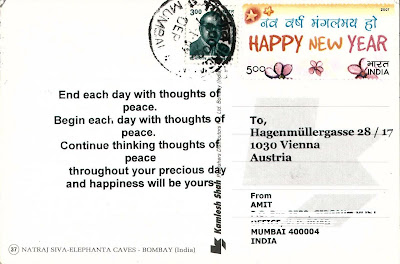 300
MUMBAI
DEC
2007
नव वर्ष मंगलमय हो
HAPPY NEW YEAR
500
भारत
INDIA
End each day with thoughts of
peace.
Begin each day with thoughts of
peace.
Continue thinking thoughts of
peace
throughout your precious day
and happiness will be yours
Kamlesh Shah
To,
Hagenmüllergasse 28 / 17
1030 Vienna
Austria
From
AMIT
MUMBAI 400004
INDIA
37 NATRAJ SIVA-ELEPHANTA CAVES - BOMBAY (India)